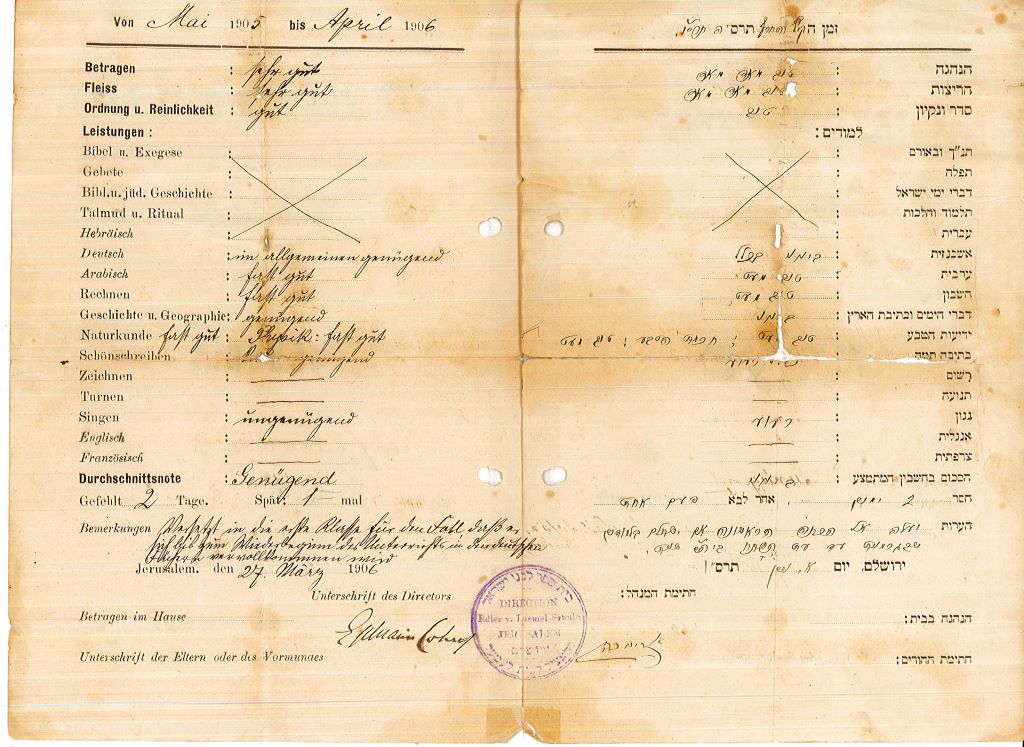 Von Mai 1905 bis April 1906
Betragen : sehr gut
Fleiss : sehr gut
Ordnung u. Reinlichkeit : gut
Leistungen :
Bibel u. Exegese :
Gebete :
Bibl. u. jüd. Geschichte :
Talmud u. Ritual :
Hebräisch :
Deutsch : im allgemeinen genügend
Arabisch : fast gut
Rechnen : fast gut
Geschichte u. Geographie: genügend
Naturkunde fast gut : Physik: fast gut
Schönschreiben genügend
Zeichnen :
Turnen :
Singen : ungenügend
Englisch :
Französisch :
Durchschnittsnote : Genügend
Gefehlt 2 Tage. Spät: 1 mal
Bemerkungen Versetzt in die erste Klasse für den Fall daß er
sich bis zum Wiederbeginn des Unterrichts in den deutschen
vervollkommnen wird
Jerusalem, den 27. März 1906
Unterschrift des Directors
Betragen im Hause
Ephraim Cohn
Unterschrift der Eltern oder des Vormunaes
בית ספר לבני ישראל
DIRECTION
Edler v. Laemel Schule
JERUSALEM
ירושלים
זמן תרס"ה
הנהגה : טוב מאד מאד
חריצות : טוב מאד מאד
סדר ונקיון : טוב
למודים :
תנ"ך ובאורם :
תפלה :
דברי ימי ישראל :
תלמוד והלכות :
עברית :
אשכנזית : בינוני בכלל
ערבית : טוב מעט
חשבון : טוב מעט
דברי הימים וכתיבת הארץ : בינוני
ידיעות הטבע : טוב מעט ; חכמת הטבע : טוב מעט
כתיבה תמה
רשום :
תנועה :
נגון : גרוע
אנגלית :
צרפתית :
הסכום בחשבון המתמצע : בינוני
חסר 2 ימים , אחר לבא פעם אחת
הערות יעלה אל המחלקה הראשונה אם
ירושלים, יום תרס"ו
חתימת המנהל:
הנהגה בבית:
חתימת ההורים: